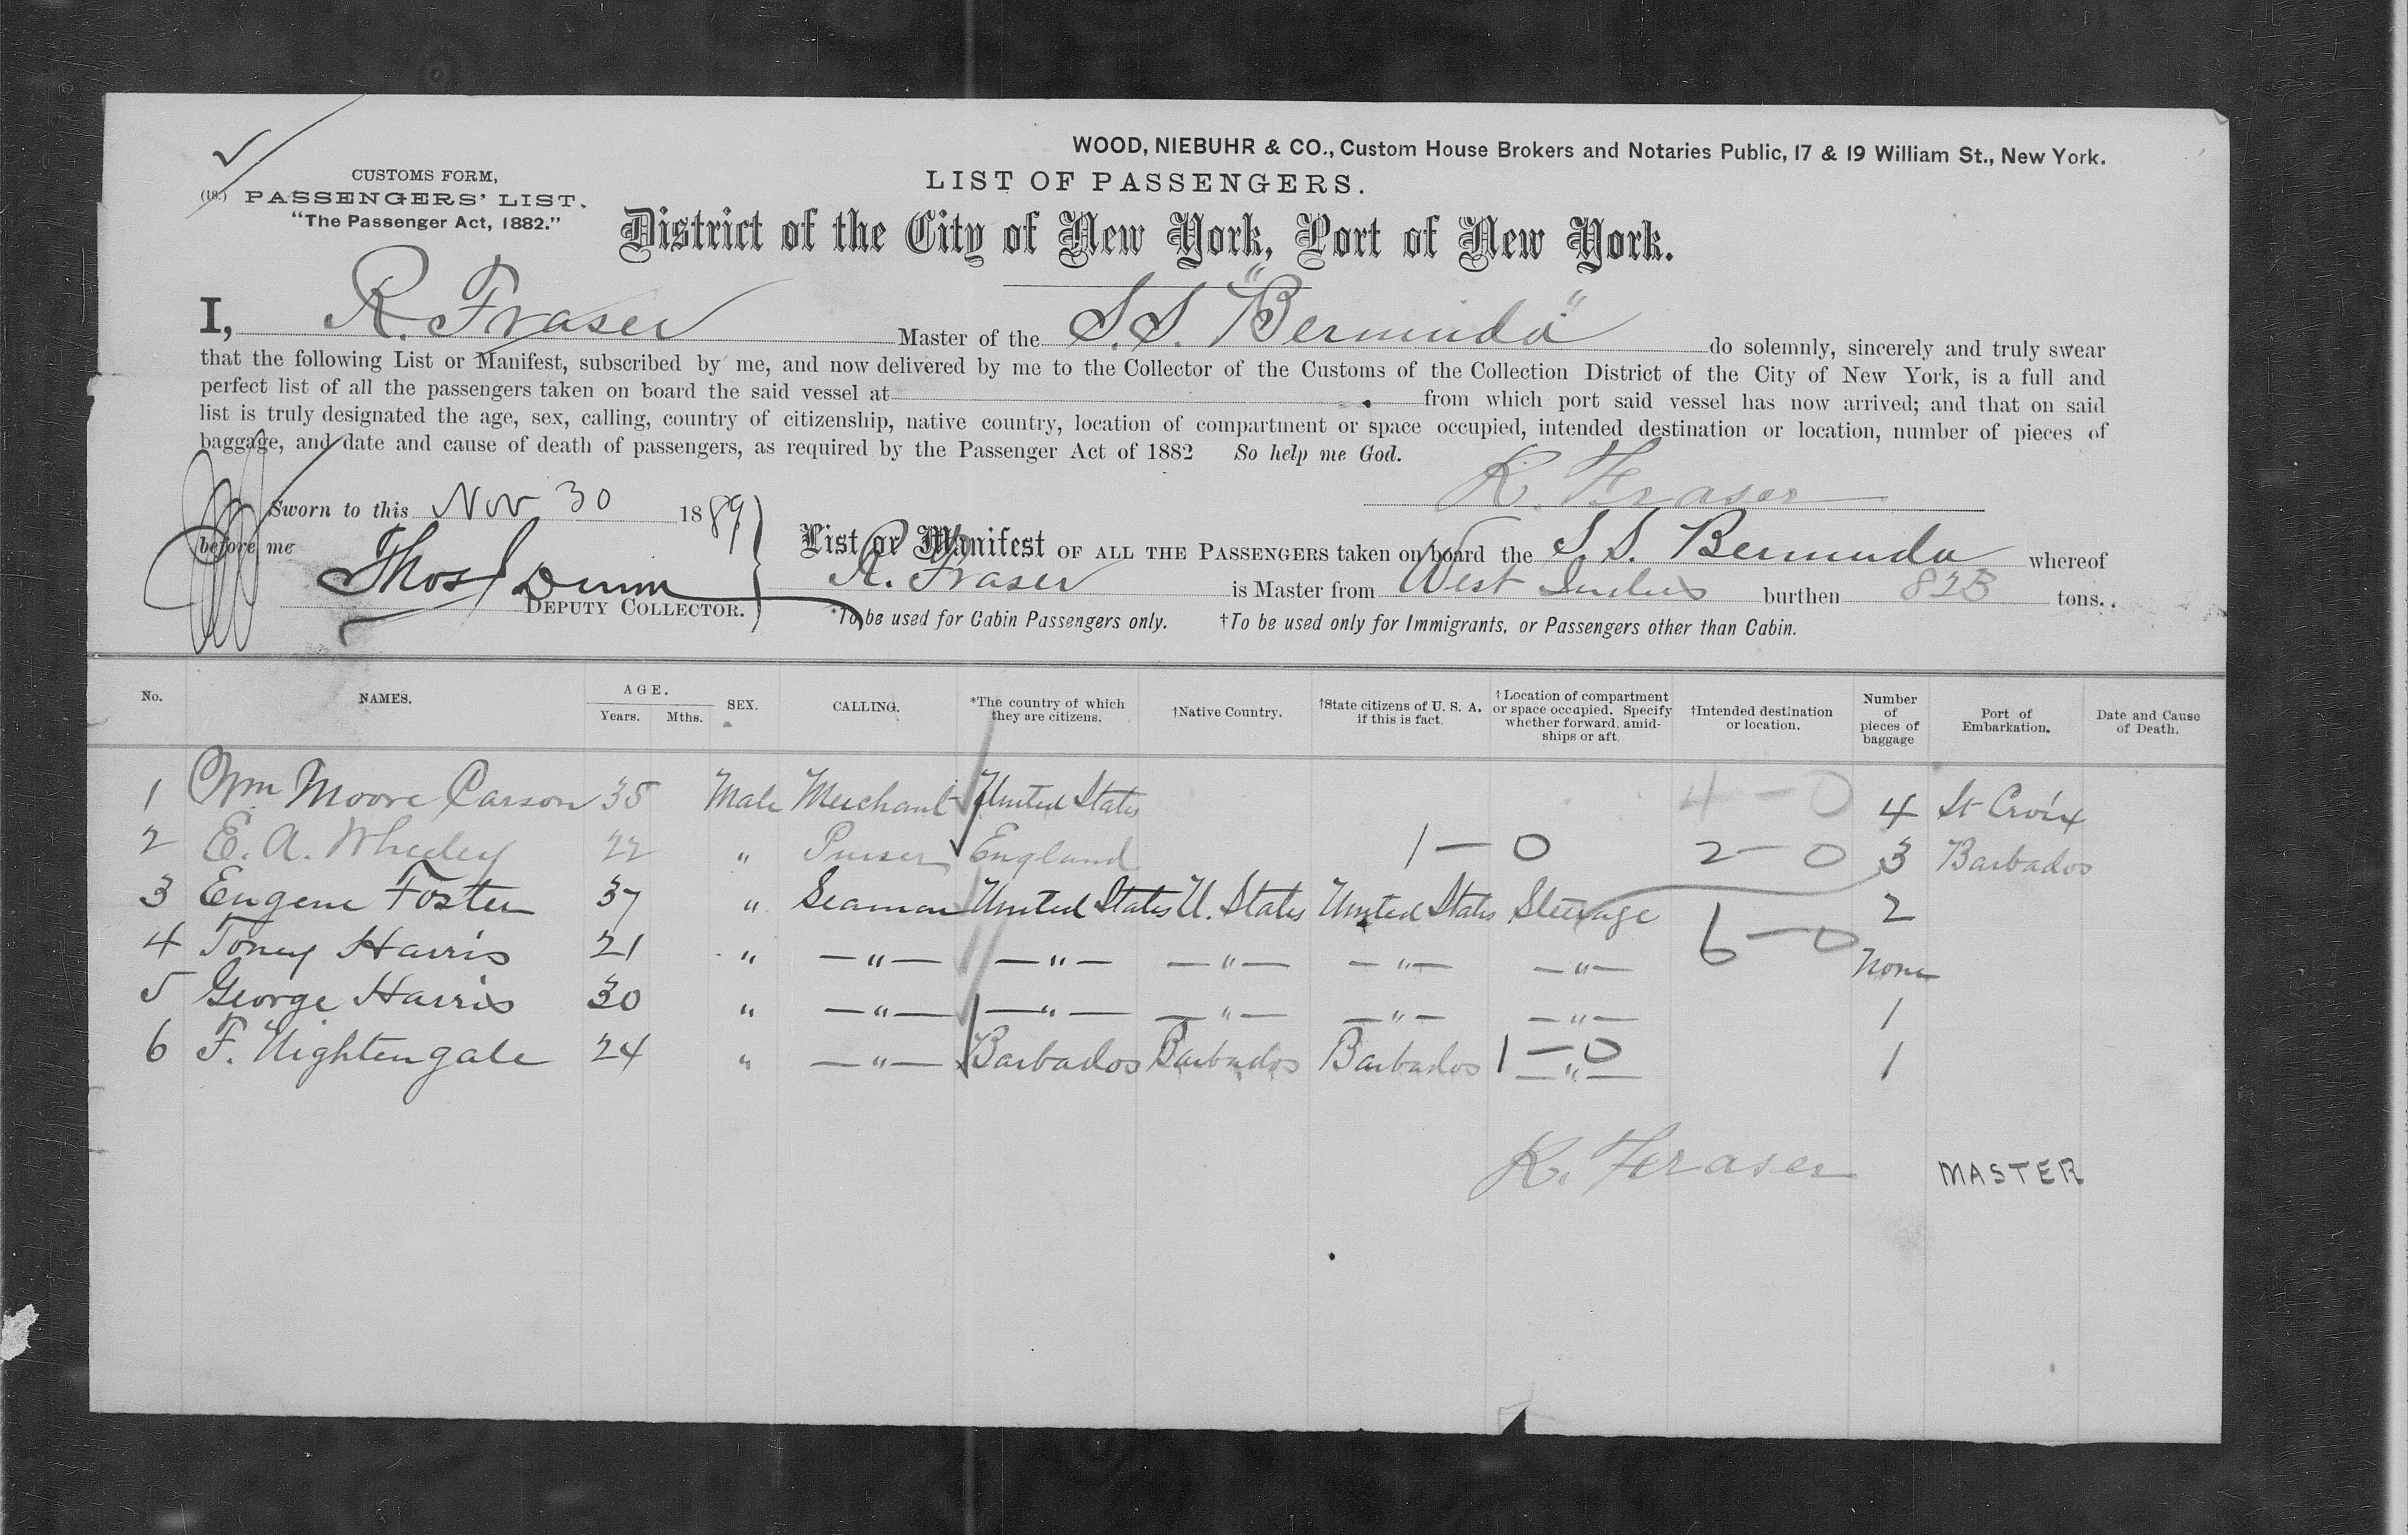 WOOD, NIEBUHR & CO., Custom House Brokers and Notaries Public, 17 & 19 William St., New York.
CUSTOMS FORM,
(18.) PASSENGERS' LIST.
"The Passenger Act, 1882."
LIST OF PASSENGERS.
District of the City of New York, Port of New York.
I, R. Fraser Master of the S.S. "Bermuda" do solemnly, sincerely and truly swear
that the following List or Manifest, subscribed by me, and now delivered by me to the Collector of the Customs of the Collection District of the City of New York, is a full and
perfect list of all the passengers taken on board the said vessel at from which port said vessel has now arrived; and that on said
list is truly designated the age, sex, calling, country of citizenship, native country, location of compartment or space occupied, intended destination or location, number of pieces of
baggage, and date and cause of death of passengers, as required by the Passenger Act of 1882 So help me God.
R. Fraser
Sworn to this Nov 30 1889
before me
Thos Dunn
DEPUTY COLLECTOR.
List or Manifest OF ALL THE PASSENGERS taken on board the S.S. Bermuda whereof
R. Fraser is Master from West Indies burthen 823 tons.
*To be used for Cabin Passengers only. †To be used only for Immigrants, or Passengers other than Cabin.
No. NAMES. AGE. Years. Mths. SEX. CALLING. *The country of which they are citizens. †Native Country. †State citizens of U. S. A. if this is fact. †Location of compartment or space occupied. Specify whether forward, amidships or aft. †Intended destination or location. Number of pieces of baggage Port of Embarkation. Date and Cause of Death.
1 Wm Moore Carson 35 Male Merchant United States 4 - 0 4 St Croix
2 E. A. Wheeley 22 " Purser England 1 - 0 2 - 0 3 Barbados
3 Eugene Foster 37 " Seaman United States U. States United States Steerage 2
4 Toney Harris 21 " —"— —"— —"— —"— —"— 6 - 0 None
5 George Harris 30 " —"— —"— —"— —"— —"— 1
6 F. Nightengale 24 " —"— Barbados Barbados Barbados 1 - 0 —"— 1
R. Fraser MASTER